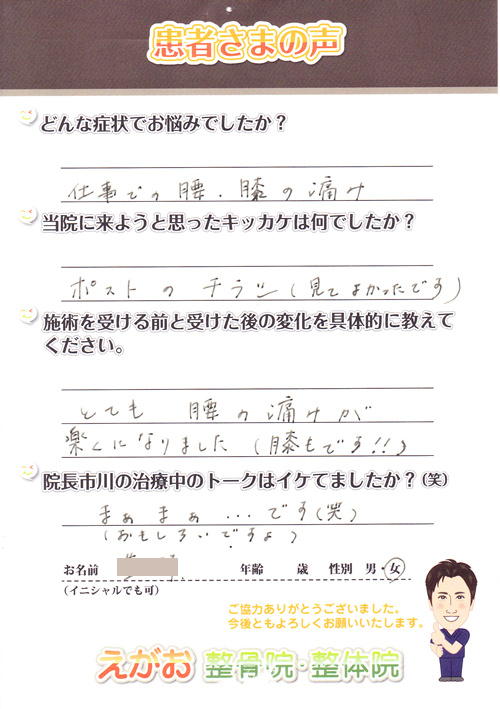 患者さまの声
どんな症状でお悩みでしたか？
仕事での腰・膝の痛み
当院に来ようと思ったキッカケは何でしたか？
ポストのチラシ（見てよかったです）
施術を受ける前と受けた後の変化を具体的に教えて
ください。
とても 腰の痛みが
楽くになりました（膝もです!!）
院長市川の治療中のトークはイケてましたか？（笑）
まぁまぁ…です（笑）
（おもしろいですよ）
お名前 年齢 歳 性別 男・女
（イニシャルでも可）
ご協力ありがとうございました。
今後ともよろしくお願いいたします。
えがお 整骨院・整体院